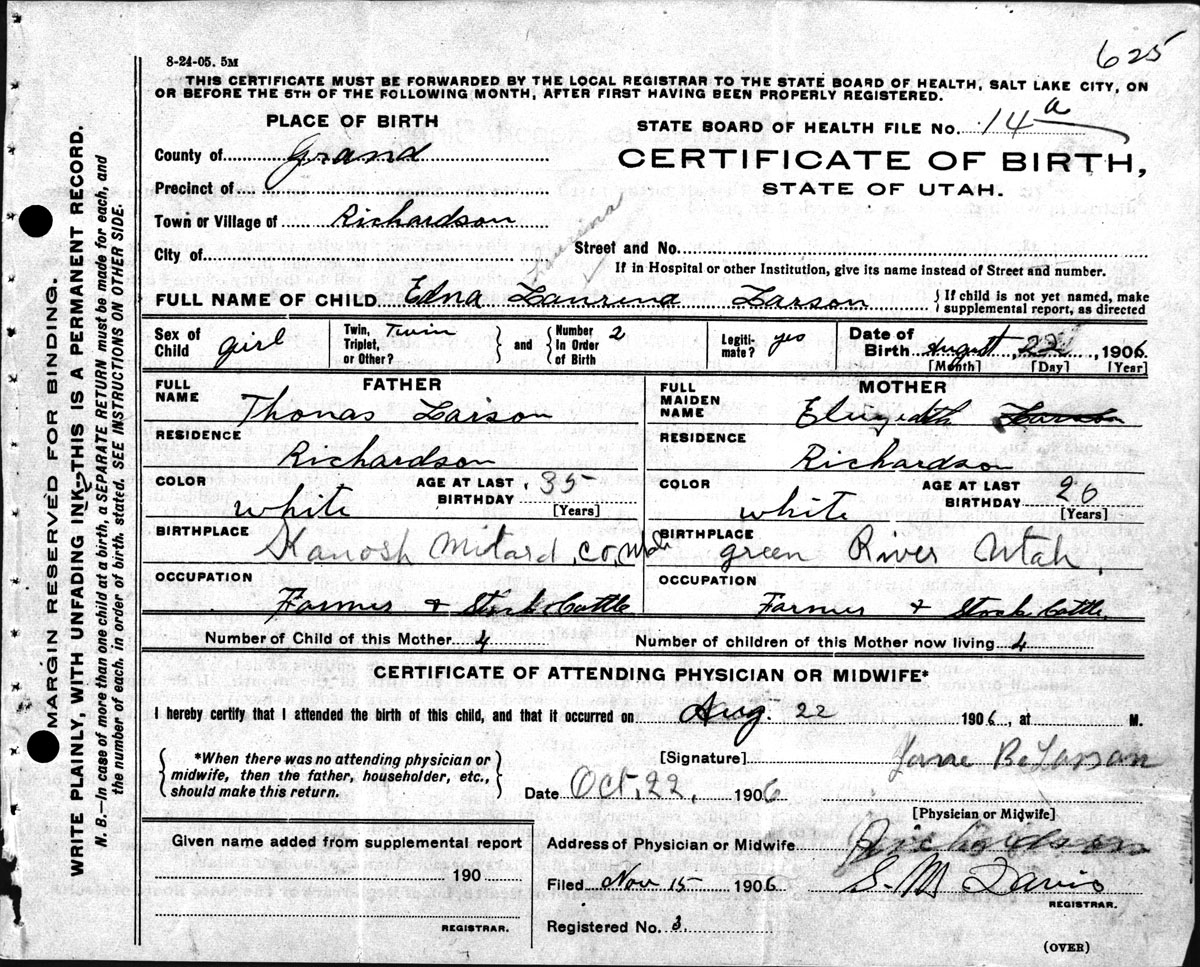 625
8-24-05. 5M
THIS CERTIFICATE MUST BE FORWARDED BY THE LOCAL REGISTRAR TO THE STATE BOARD OF HEALTH, SALT LAKE CITY, ON
OR BEFORE THE 5TH OF THE FOLLOWING MONTH, AFTER FIRST HAVING BEEN PROPERLY REGISTERED.
PLACE OF BIRTH
STATE BOARD OF HEALTH FILE No. 14 a
County of Grand
CERTIFICATE OF BIRTH,
STATE OF UTAH.
Precinct of
Town or Village of Richardson
City of
Street and No.
If in Hospital or other Institution, give its name instead of Street and number.
Laurina
FULL NAME OF CHILD Edna Laurina Larson
If child is not yet named, make
supplemental report, as directed
Sex of
Child girl
Twin, Twin
Triplet,
or Other?
and
Number 2
In Order
of Birth
Legiti-
mate? yes
Date of
Birth August, 22, 1906
[Month] [Day] [Year]
FATHER
FULL
NAME
Thomas Larson
RESIDENCE
Richardson
COLOR
white
AGE AT LAST
BIRTHDAY 35
[Years]
BIRTHPLACE
Kanosh Milard, co, Utah
OCCUPATION
Farmer & Stock Cattle
MOTHER
FULL
MAIDEN
NAME
RESIDENCE
Richardson
COLOR
white
AGE AT LAST
BIRTHDAY 26
[Years]
BIRTHPLACE
green River Utah.
OCCUPATION
Farmer & Stock Cattle
Number of Child of this Mother 4
Number of children of this Mother now living 4
CERTIFICATE OF ATTENDING PHYSICIAN OR MIDWIFE*
I hereby certify that I attended the birth of this child, and that it occurred on Aug. 22 1906, at M.
*When there was no attending physician or
midwife, then the father, householder, etc.,
should make this return.
[Signature]
Date Oct, 22, 1906
[Physician or Midwife]
Given name added from supplemental report
190
REGISTRAR.
Address of Physician or Midwife Richardson
Filed Nov 15 1906 S. M Davis
REGISTRAR.
Registered No. 3
(OVER)
MARGIN RESERVED FOR BINDING.
WRITE PLAINLY, WITH UNFADING INK—THIS IS A PERMANENT RECORD.
N. B.—In case of more than one child at a birth, a SEPARATE RETURN must be made for each, and
the number of each, in order of birth, stated. SEE INSTRUCTIONS ON OTHER SIDE.